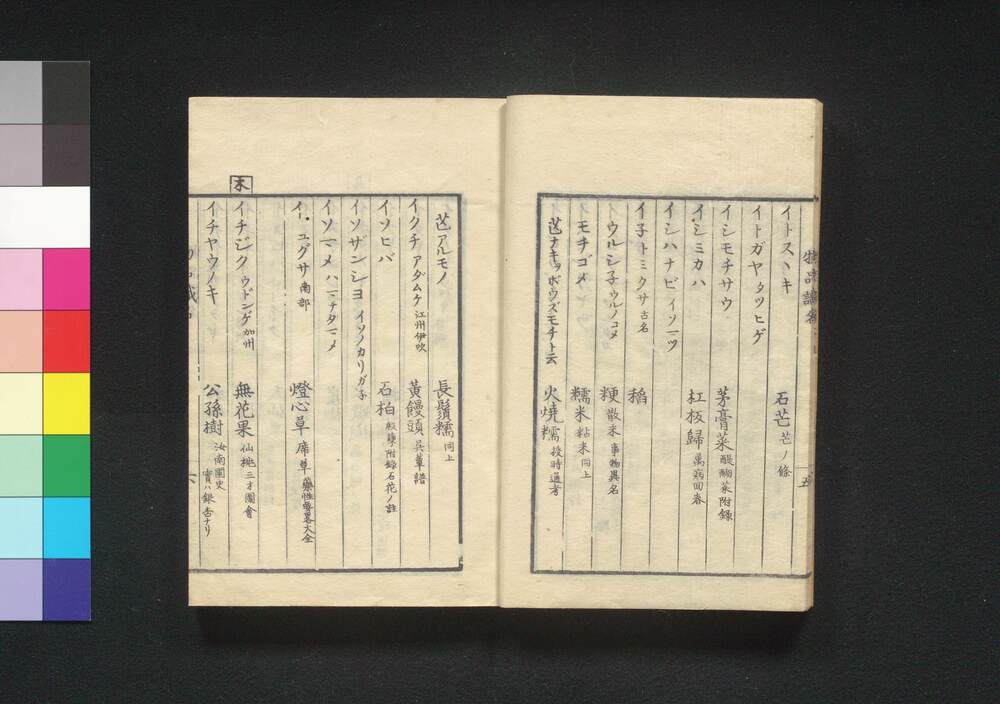 イトスヽキ 石芒 芒ノ條
イトガヤ タツヒゲ
イシモチサウ 茅膏菜 醍醐菜附録
イシミカハ 杠板歸 萬病回春
イシハナビ イソマツ
イ子 トミクサ 古名 稻
ウルシ子 ウルノコメ 粳 散米 事物異名
モチゴメ 糯米 粘米 同上
芒ナキヲボウズモチト云 火燒糯 授時通考
五
芒アルモノ 長鬚糯 同上
イクチ アダムケ 江州伊吹 黄饅頭 呉蕈譜
イソヒバ 石柏 附録石花ノ註
イソザンシヨ イソノカリガ子
イソマメ ハマナタマメ
イ ユグサ 南部 燈心草 席草 大全
木
イチジク ウドンゲ 加州 無花果 仙桃 三才圖會
イチヤウノキ 公孫樹 汝南圃史 實ハ銀杏ナリ
六